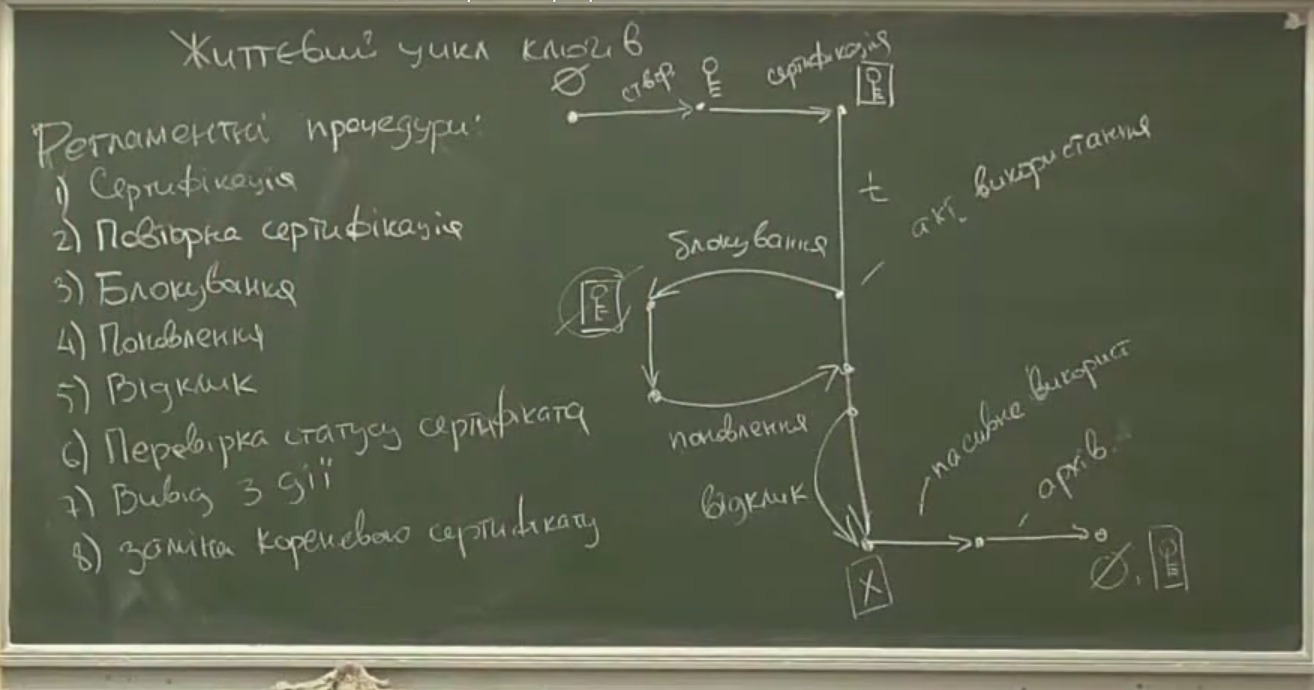 Життєвий цикл ключів
Регламентні процедури:
1) Сертифікація
2) Повторна сертифікація
3) Блокування
4) Поновлення
5) Відклик
6) Перевірка статусу сертифіката
7) Вивід з дії
8) заміна кореневого сертифікату
∅
створ.
сертифікація
t
акт. використання
блокування
поновлення
відклик
пасивне використ
архів.
X
∅,